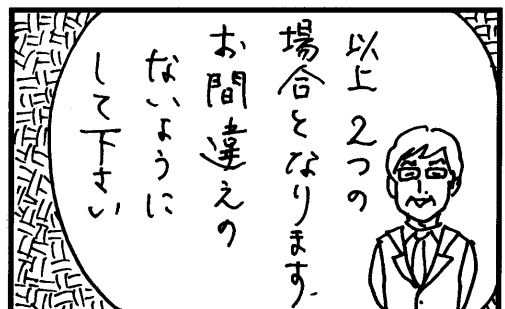 以上2つの
場合となります.
お間違えの
ないように
して下さい